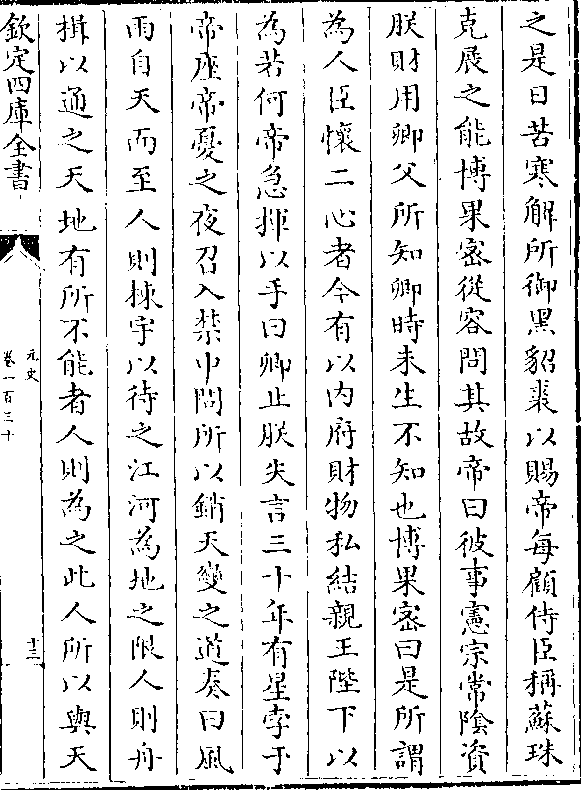 之是日苦寒解所御黑貂裘以賜帝每顧侍臣稱蘇珠
克展之能博果密從容問其故帝曰彼事憲宗常陰資
朕財用卿父所知卿時未生不知也博果密曰是所謂
為人臣懷二心者今有以内府財物私結親王陛下以
為若何帝急揮以手曰卿止朕失言三十年有星孛于
帝座帝憂之夜召入禁中問所以銷天變之道奏曰風
雨自天而至人則棟宇以待之江河為地之限人則舟
楫以通之天地有所不能者人則為之此人所以與天
欽定四庫全書
元史
卷一百三十
十三